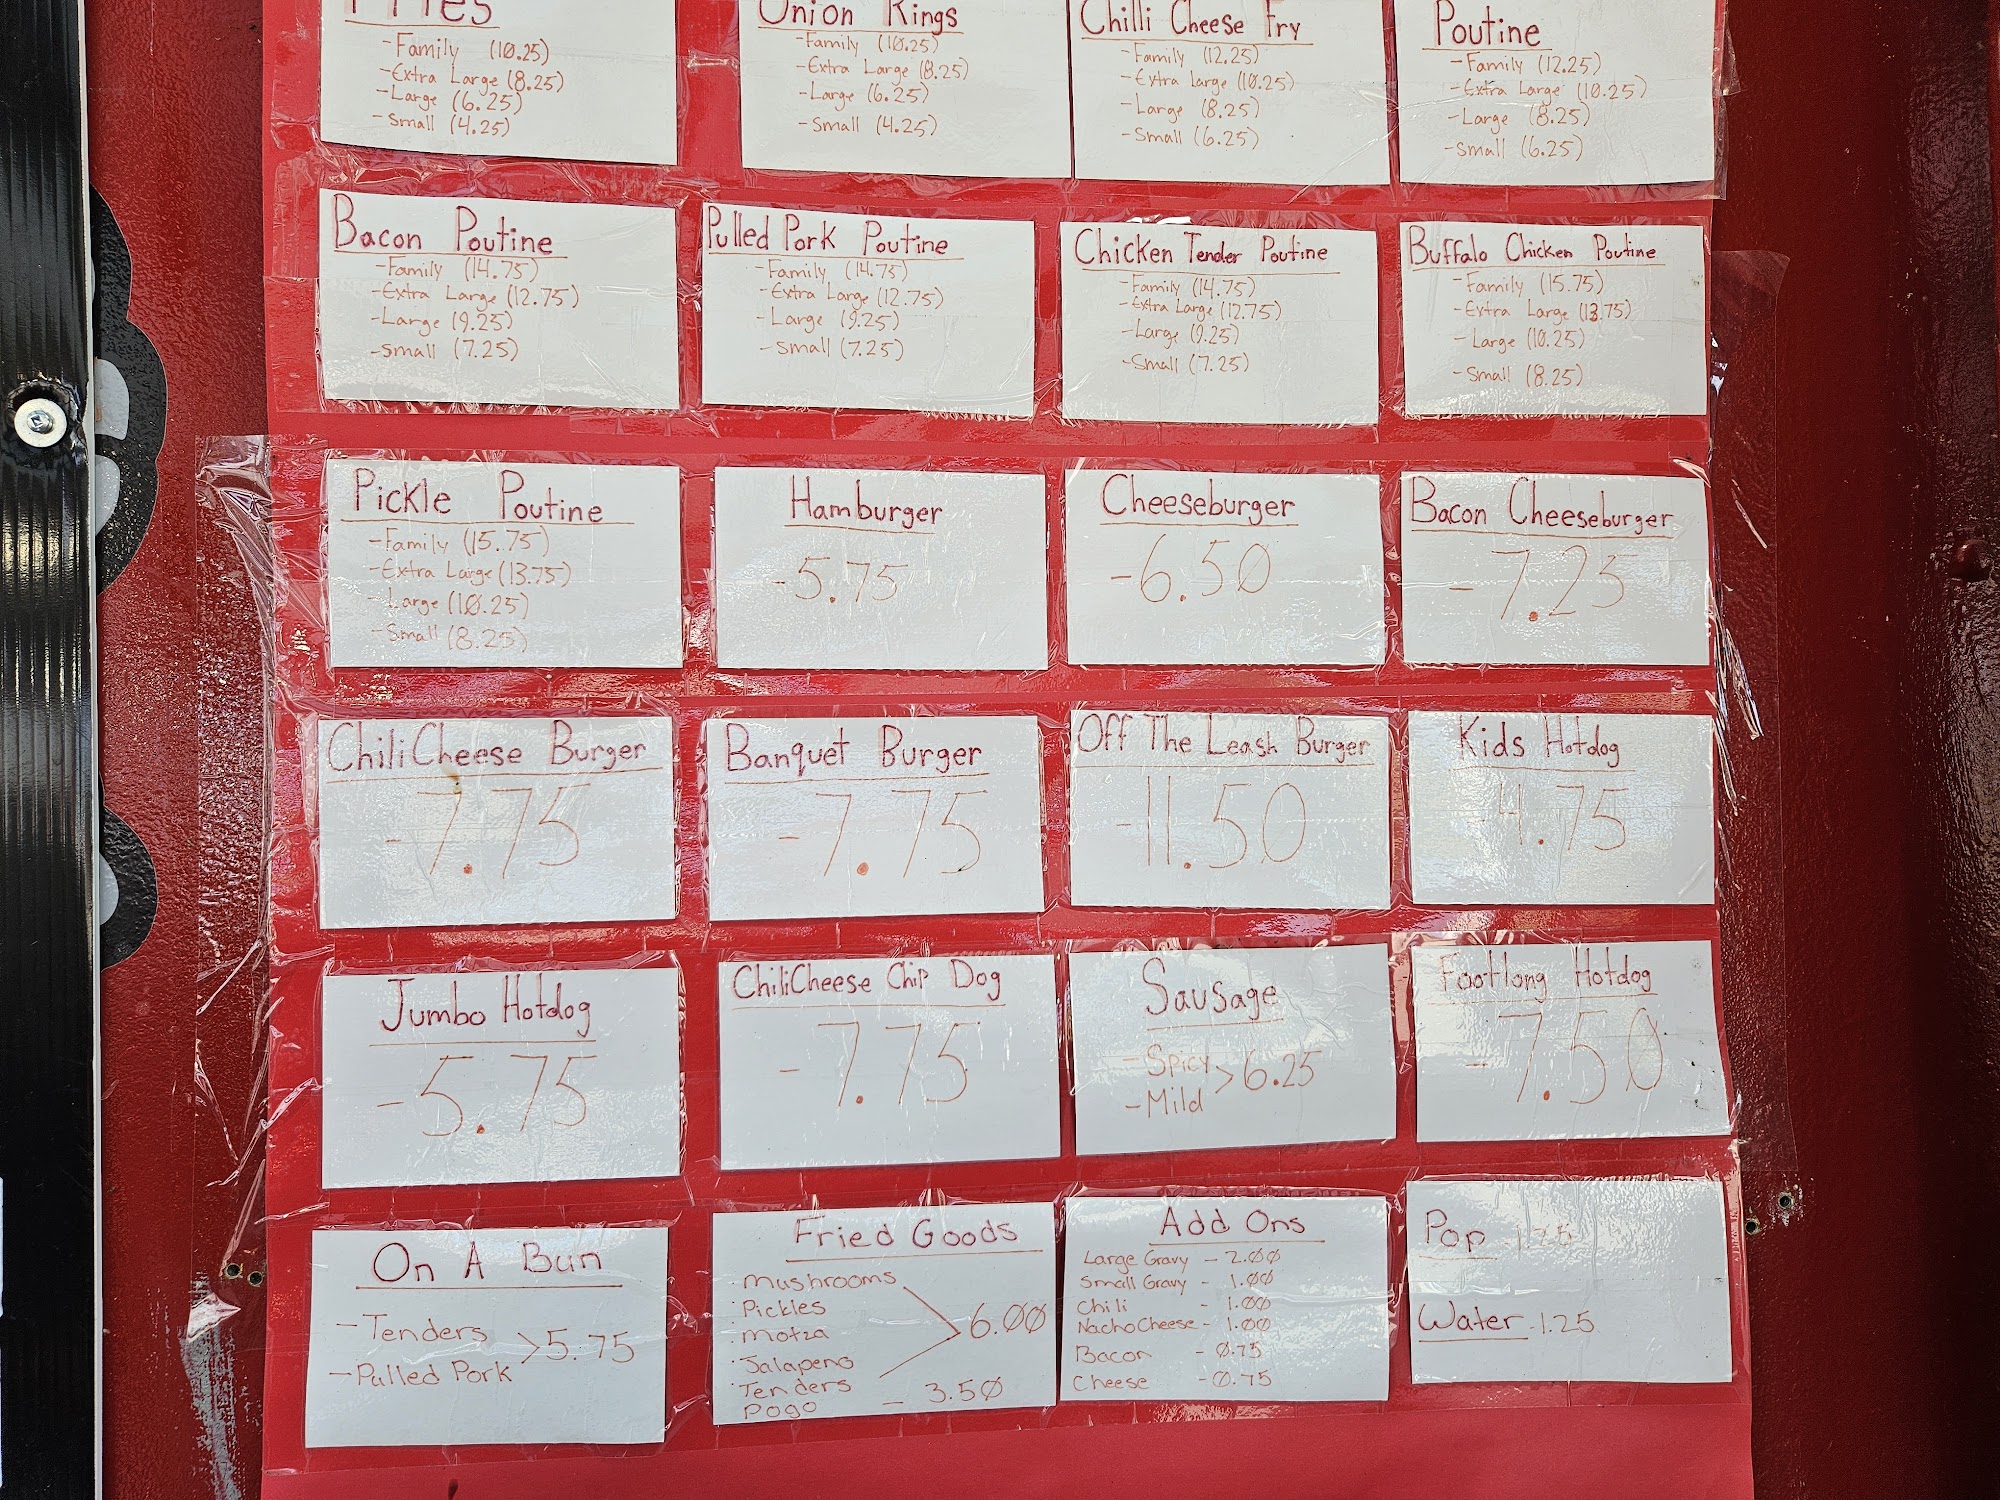 Fries
-Family (10.25)
-Extra Large (8.25)
-Large (6.25)
-Small (4.25)
Onion Rings
-Family (10.25)
-Extra Large (8.25)
-Large (6.25)
-Small (4.25)
Chilli Cheese Fry
-Family (12.25)
-Extra Large (10.25)
-Large (8.25)
-Small (6.25)
Poutine
-Family (12.25)
-Extra Large (10.25)
-Large (8.25)
-Small (6.25)
Bacon Poutine
-Family (14.75)
-Extra Large (12.75)
-Large (9.25)
-Small (7.25)
Pulled Pork Poutine
-Family (14.75)
-Extra Large (12.75)
-Large (9.25)
-Small (7.25)
Chicken Tender Poutine
-Family (14.75)
-Extra Large (12.75)
-Large (9.25)
-Small (7.25)
Buffalo Chicken Poutine
-Family (15.75)
-Extra Large (13.75)
-Large (10.25)
-Small (8.25)
Pickle Poutine
-Family (15.75)
-Extra Large (13.75)
-Large (10.25)
-Small (8.25)
Hamburger
-5.75
Cheeseburger
-6.50
Bacon Cheeseburger
-7.25
Chili Cheese Burger
-7.75
Banquet Burger
-7.75
Off The Leash Burger
-11.50
Kids Hotdog
-4.75
Jumbo Hotdog
-5.75
Chili Cheese Chip Dog
-7.75
Sausage
-Spicy >6.25
-Mild
Footlong Hotdog
-7.50
On A Bun
-Tenders >5.75
-Pulled Pork
Fried Goods
·Mushrooms
·Pickles
·Motza 6.00
·Jalapeno
·Tenders
Pogo - 3.50
Add Ons
Large Gravy - 2.00
Small Gravy - 1.00
Chili - 1.00
Nacho Cheese - 1.00
Bacon - 0.75
Cheese - 0.75
Pop
Water -1.25